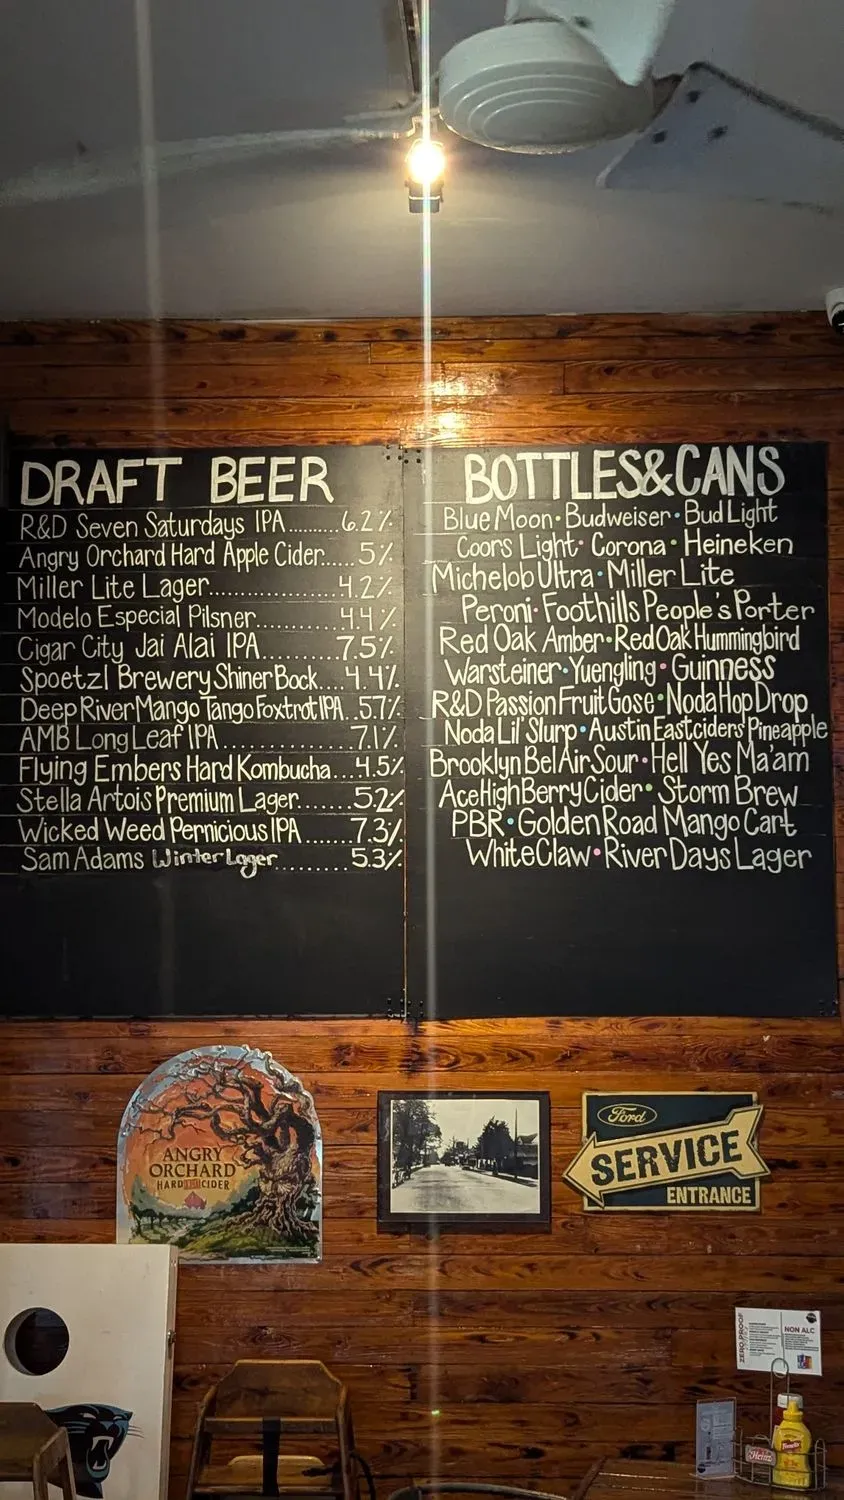 DRAFT BEER
R&D Seven Saturdays IPA.........6.2%
Angry Orchard Hard Apple Cider......5%
Miller Lite Lager......................4.2%
Modelo Especial Pilsner..............4.4%
Cigar City Jai Alai IPA..............7.5%
Spoetzl Brewery Shiner Bock....4.4%
Deep River Mango Tango Foxtrot IPA..5.7%
AMB Long Leaf IPA...................7.1%
Flying Embers Hard Kombucha....4.5%
Stella Artois Premium Lager.......5.2%
Wicked Weed Pernicious IPA.......7.3%
Sam Adams Winter Lager..........5.3%
BOTTLES&CANS
Blue Moon•Budweiser•Bud Light
Coors Light•Corona•Heineken
Michelob Ultra•Miller Lite
Peroni•Foothills People's Porter
Red Oak Amber•Red Oak Hummingbird
Warsteiner•Yuengling•Guinness
R&D Passion Fruit Gose•Noda Hop Drop
Noda Lil' Slurp•Austin Eastciders Pineapple
Brooklyn Bel Air Sour•Hell Yes Ma'am
Ace High Berry Cider•Storm Brew
PBR•Golden Road Mango Cart
White Claw•River Days Lager
ANGRY
ORCHARD
HARD CIDER
Ford
SERVICE
ENTRANCE
ZERO PROOF
NON ALC
Heinz
French's